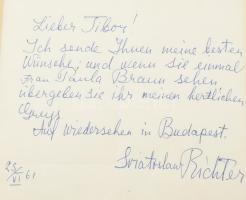 Lieber Tibor!
Ich sende Ihnen meine besten
Wünsche, und wenn Sie einmal
Frau Paula Braun sehen
übergeben Sie ihr meinen herzlichen
Gruß.
Auf wiedersehen in Budapest.
Sviatoslav Richter
25/VI 61